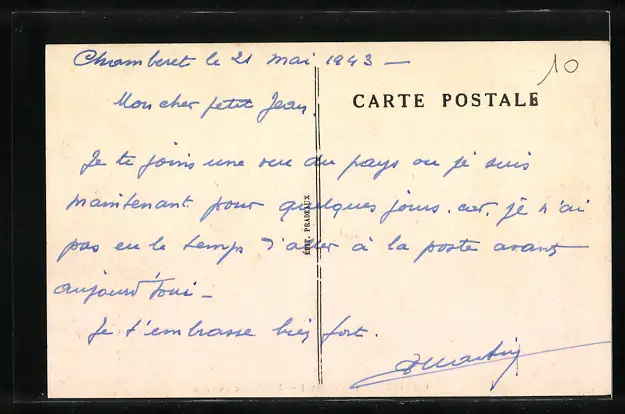 Chamberet le 21 mai 1943 —
10
Mon cher petit Jean,
CARTE POSTALE
Je te joins une vue du pays ou je suis
maintenant pour quelques jours. car, je n'ai
pas eu le temps d'aller à la poste avant
aujourd'hui —
Je t'embrasse bien fort.
EDIT. PRADEAUX